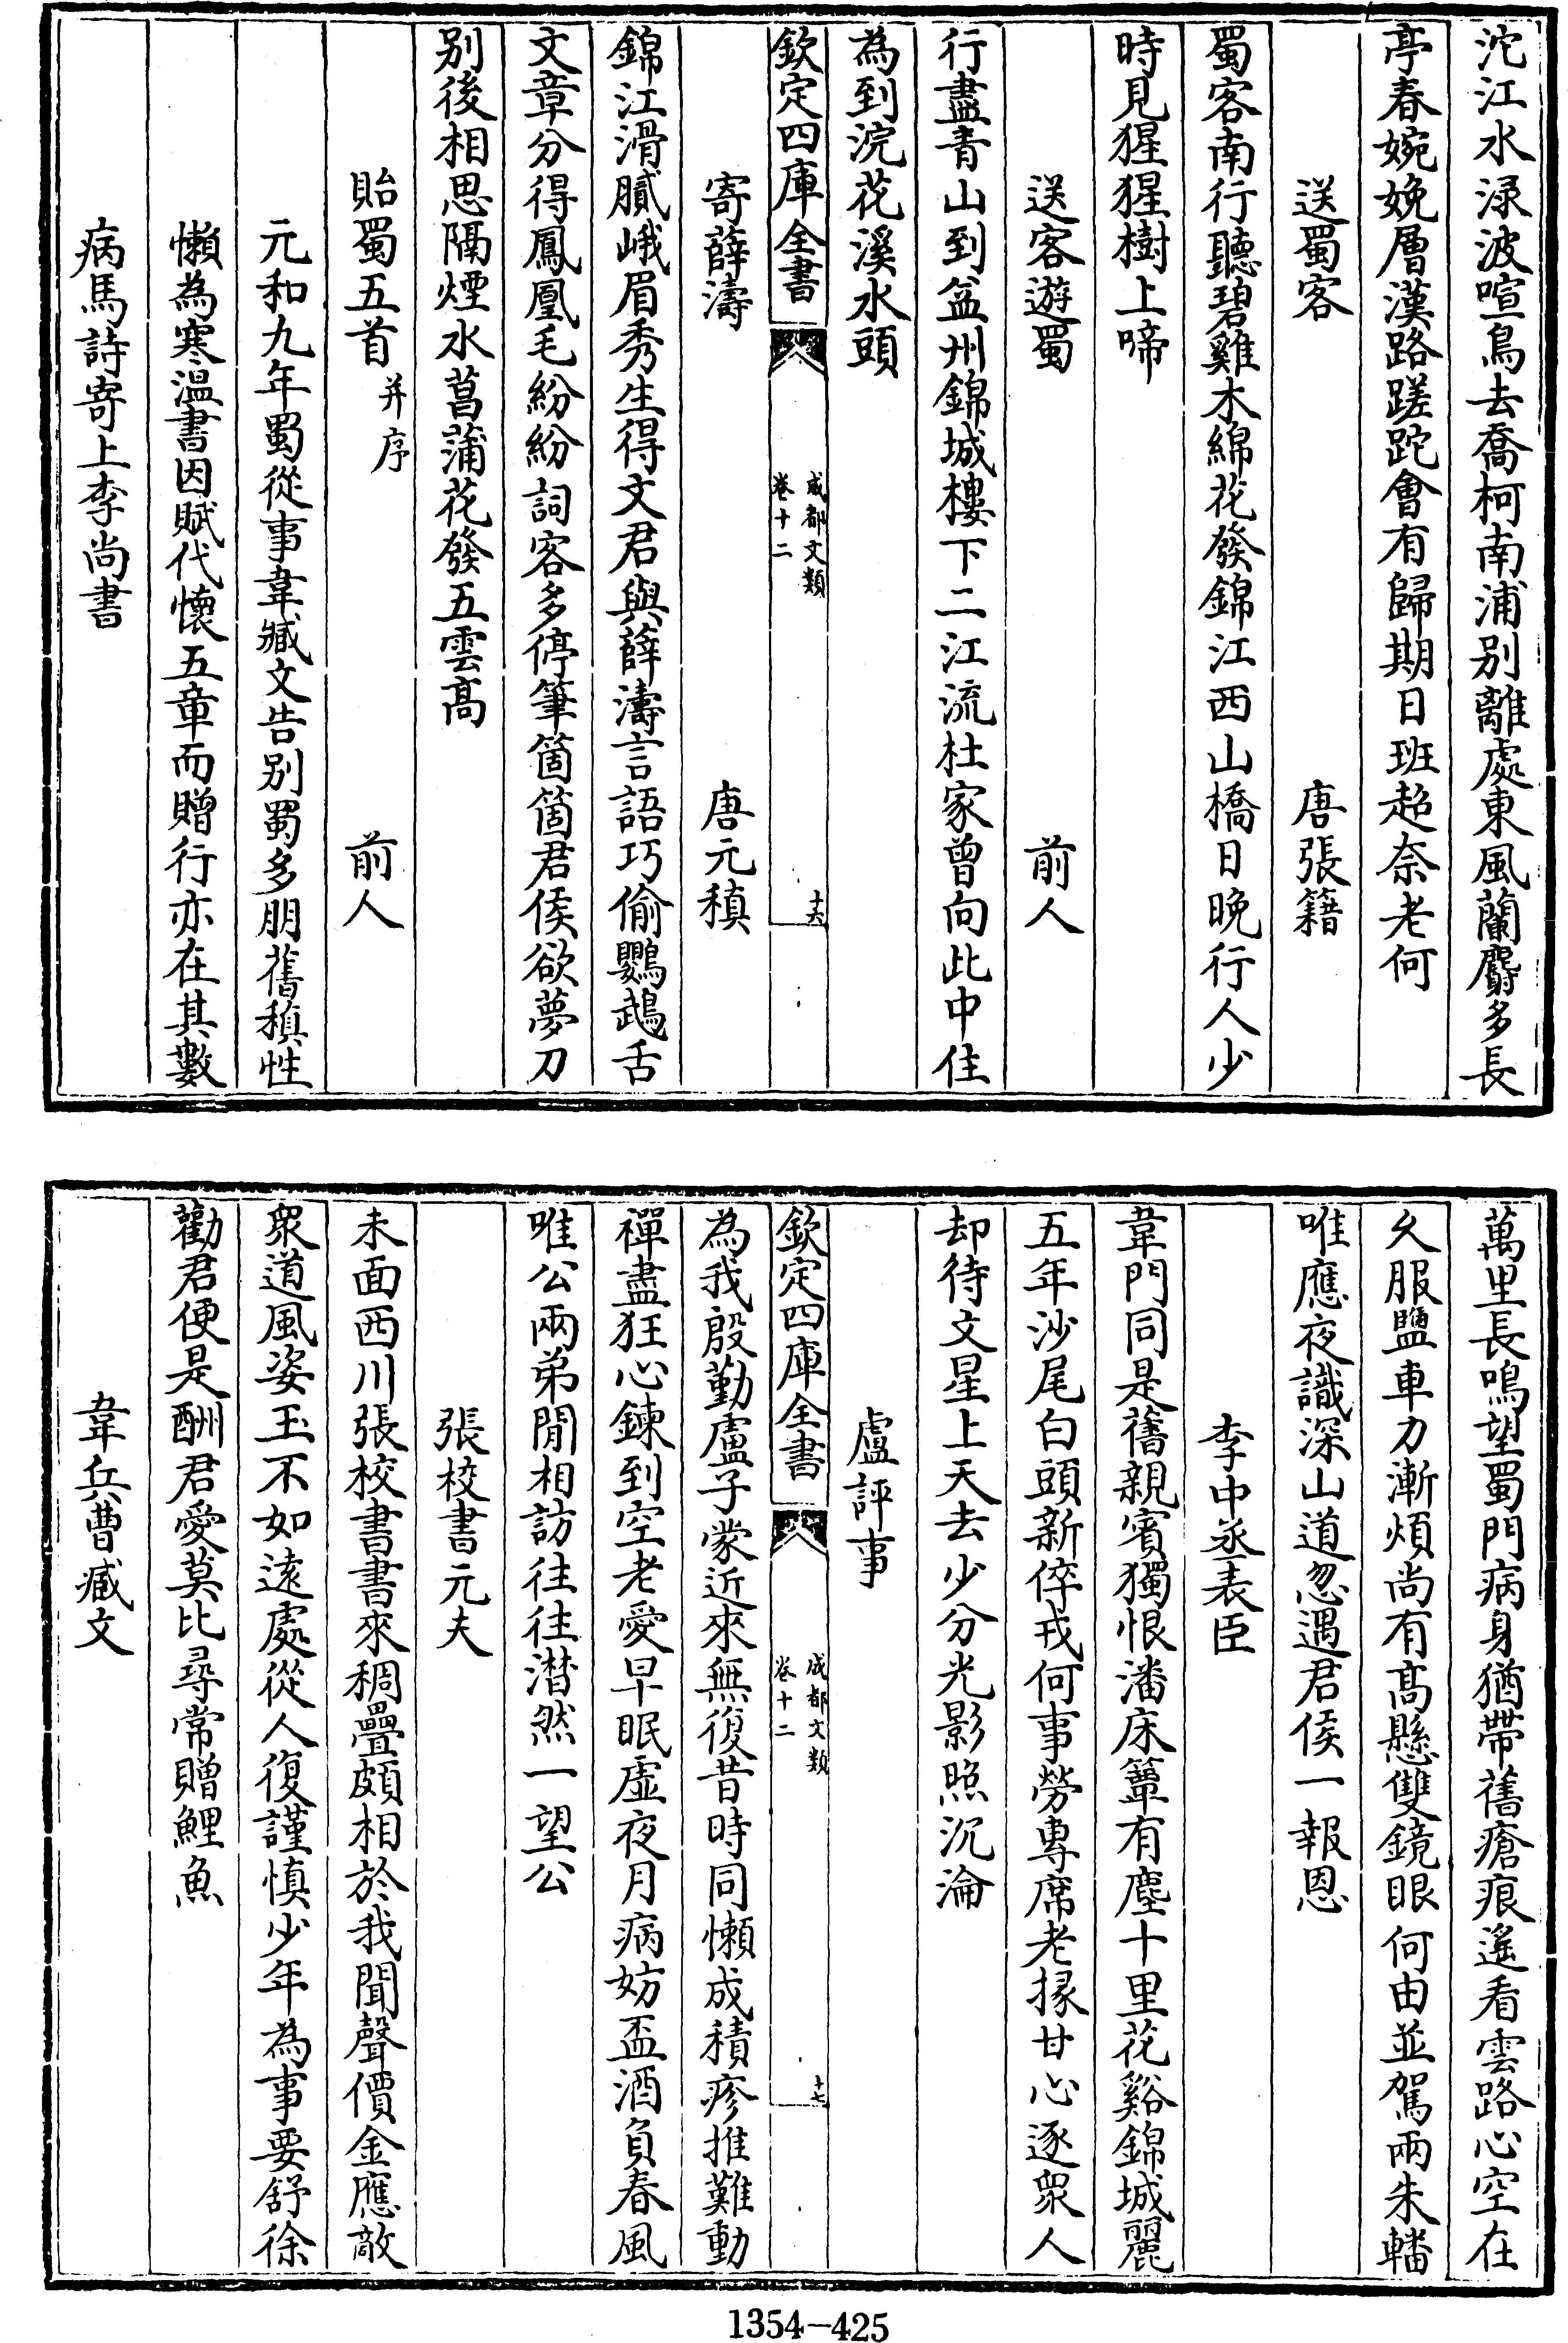 沱江水渌波喧鳥去喬柯南浦别離處東風蘭麝多長
亭春婉娩層漢路蹉跎會有歸期日班超奈老何
送蜀客　唐張籍
蜀客南行聽碧雞木綿花發錦江西山橋日晚行人少
時見猩猩樹上啼
送客遊蜀　前人
行盡青山到益州錦城樓下二江流杜家曾向此中住
為到浣花溪水頭
欽定四庫全書　成都文類　卷十二　十六
寄薛濤　唐元稹
錦江滑膩峨眉秀生得文君與薛濤言語巧偷鸚鵡舌
文章分得鳳凰毛紛紛詞客多停筆箇箇君侯欲夢刀
别後相思隔煙水菖蒲花發五雲髙
貽蜀五首并序　前人
元和九年蜀從事韋臧文告别蜀多朋舊稹性
懶為寒温書因賦代懷五章而贈行亦在其數
病馬詩寄上李尚書
萬里長鳴望蜀門病身猶帶舊瘡痕遙看雲路心空在
乆服鹽車力漸煩尚有髙懸雙鏡眼何由並駕兩朱轓
唯應夜識深山道忽遇君侯一報恩
李中丞表臣
韋門同是舊親賓獨恨潘床簟有塵十里花谿錦城麗
五年沙尾白頭新倅戎何事勞專席老掾甘心逐衆人
却待文星上天去少分光影照沉淪
盧評事
欽定四庫全書　成都文類　卷十二　十七
為我殷勤盧子蒙近來無復昔時同懶成積疹推難動
禪盡狂心鍊到空老愛早眠虚夜月病妨盃酒負春風
唯公兩弟閒相訪往往潸然一望公
張校書元夫
未面西川張校書書來稠疊頗相於我聞聲價金應敵
衆道風姿玉不如遠處從人復謹慎少年為事要舒徐
勸君便是酬君愛莫比尋常贈鯉魚
韋兵曹臧文
1354-425